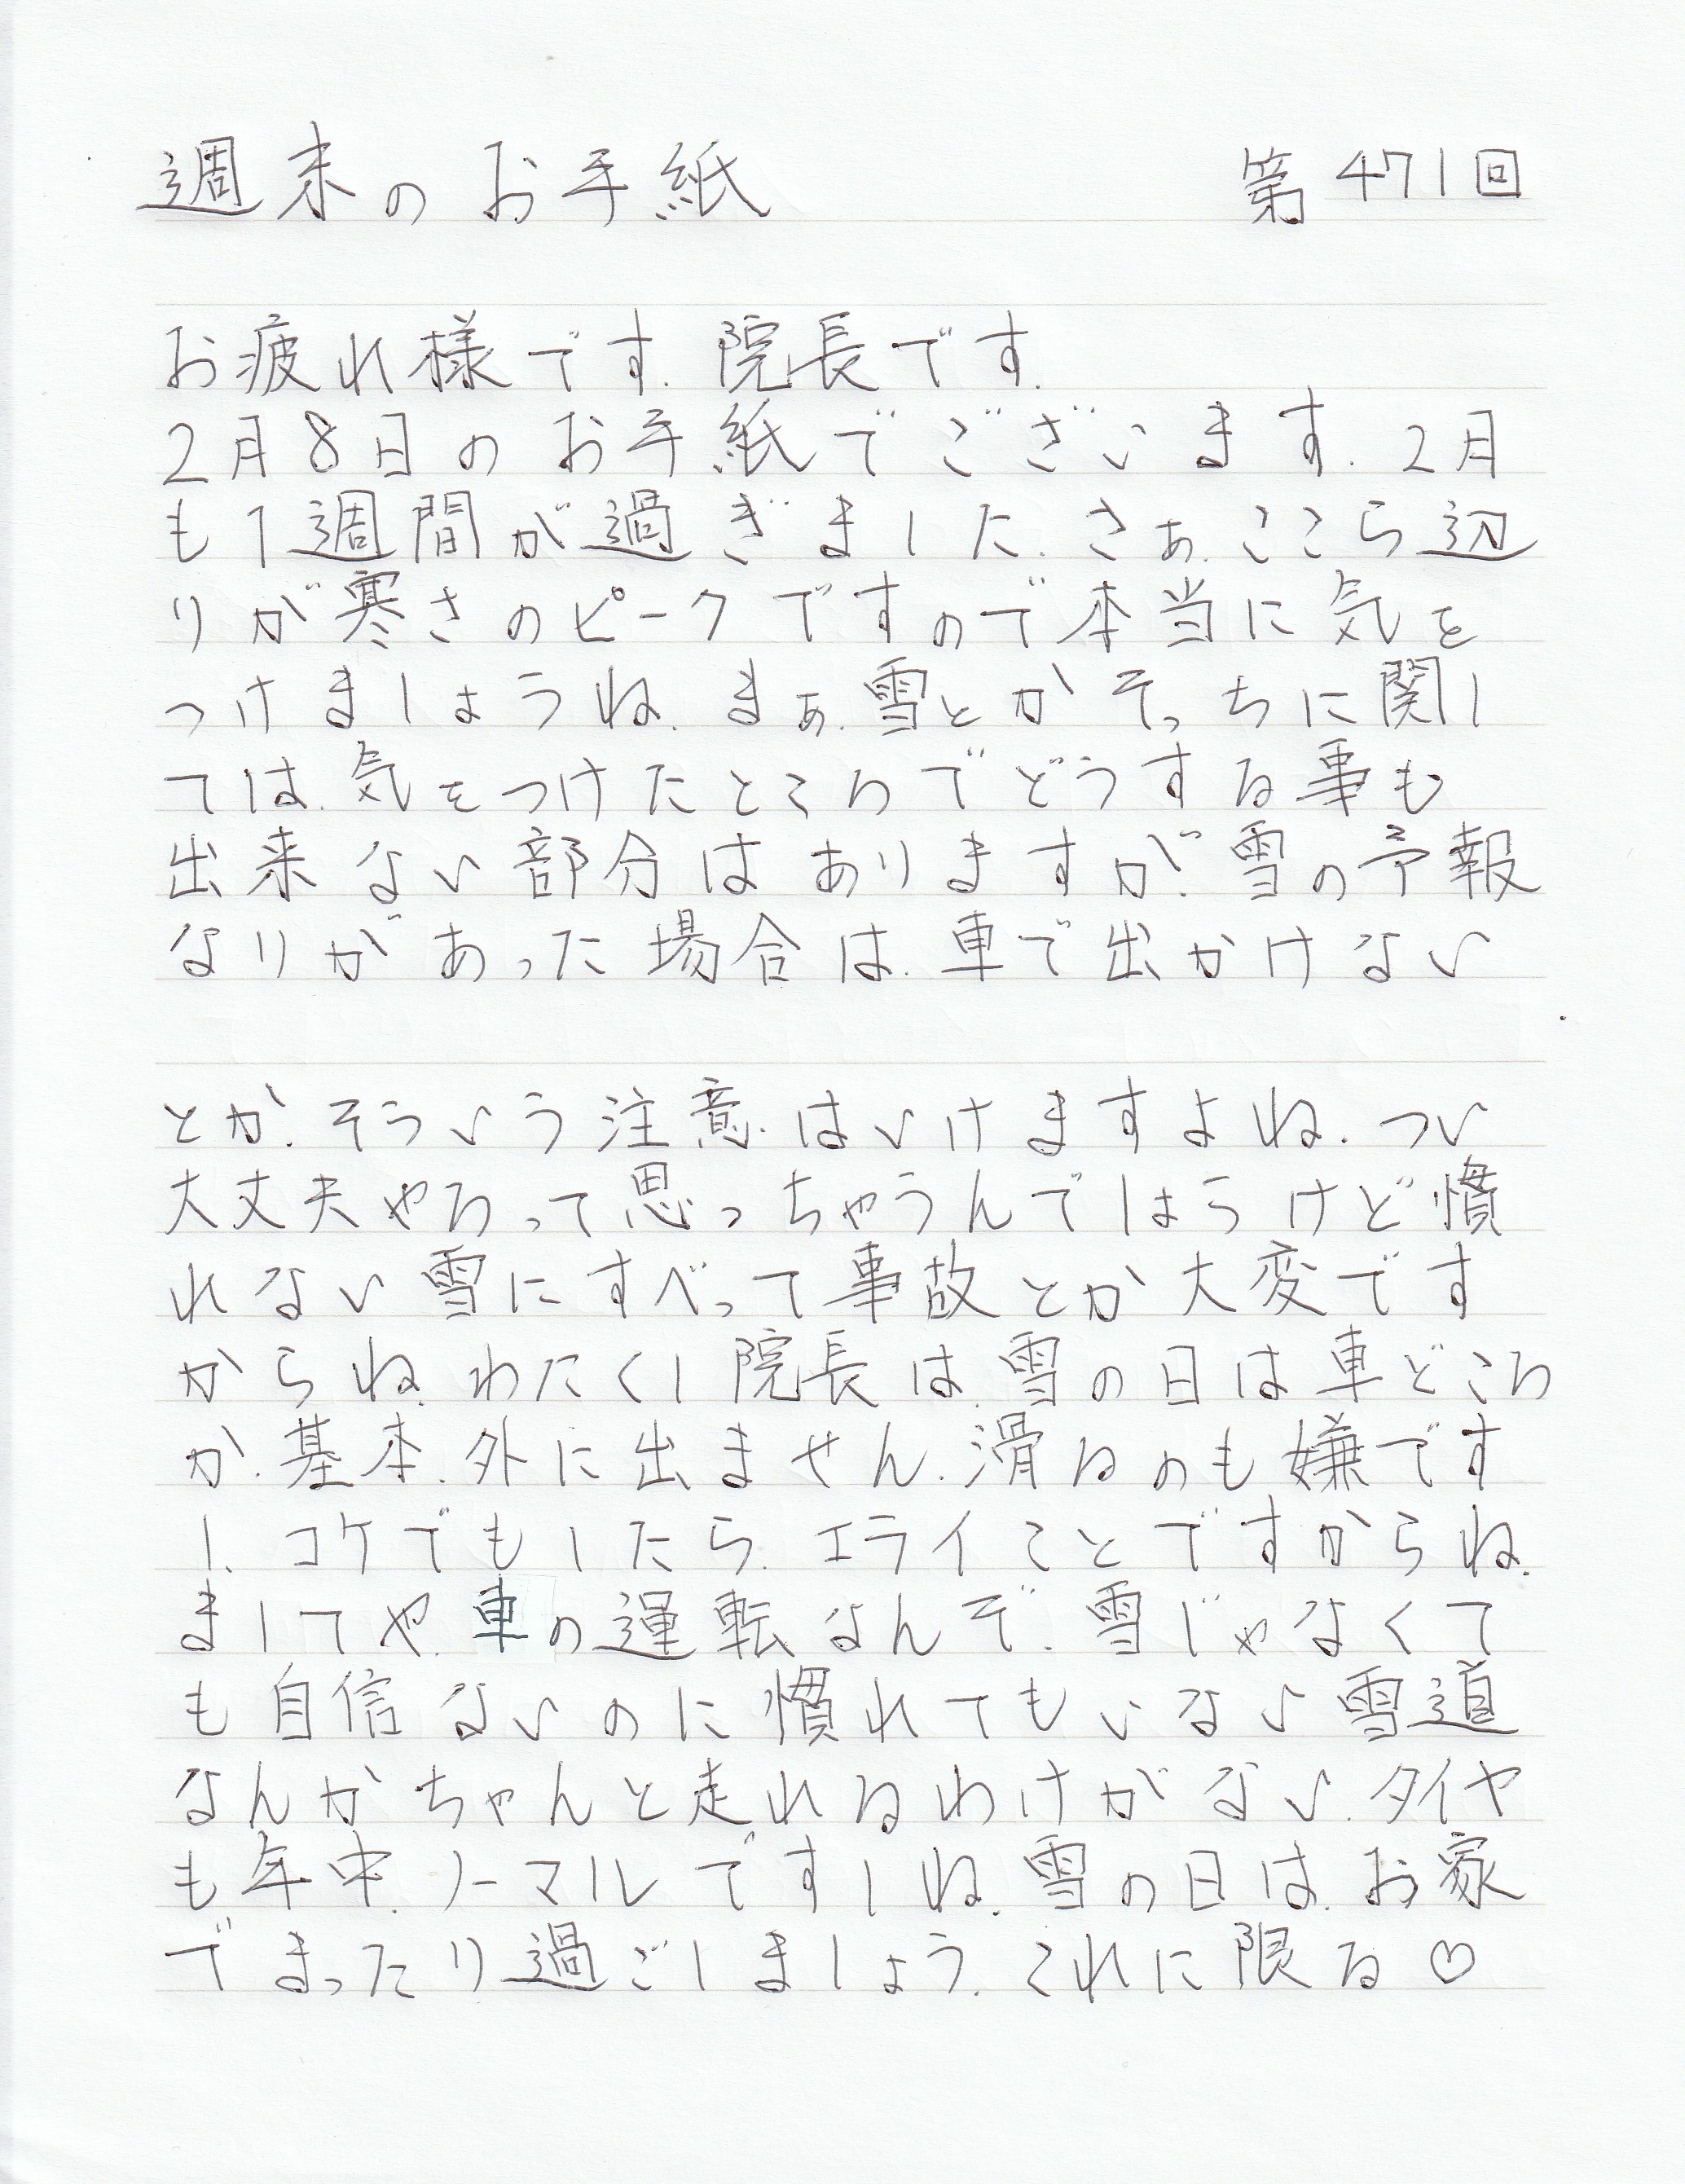 週末のお手紙 第471回
お疲れ様です.院長です.
2月8日のお手紙でございます.2月
も1週間が過ぎました.さぁ.ここら辺
りが寒さのピークですので本当に気を
つけましょうね.まぁ.雪とかそっちに関し
ては.気をつけたところでどうする事も
出来ない部分はありますが.雪の予報
なりがあった場合は.車で出かけない
とか.そういう注意はいけますよね.つい
大丈夫やろって思っちゃうんでしょうけど慣
れない雪にすべって事故とか大変です
からね.わたくし院長は.雪の日は車どころ
か.基本.外に出ません.滑るのも嫌です
し.コケでもしたら.エライことですからね.
ましてや.車の運転なんぞ.雪じゃなくて
も自信ないのに慣れてもいない雪道
なんかちゃんと走れるわけがない.タイヤ
も年中.ノーマルですしね.雪の日は.お家
でまったり過ごしましょう.これに限る♡